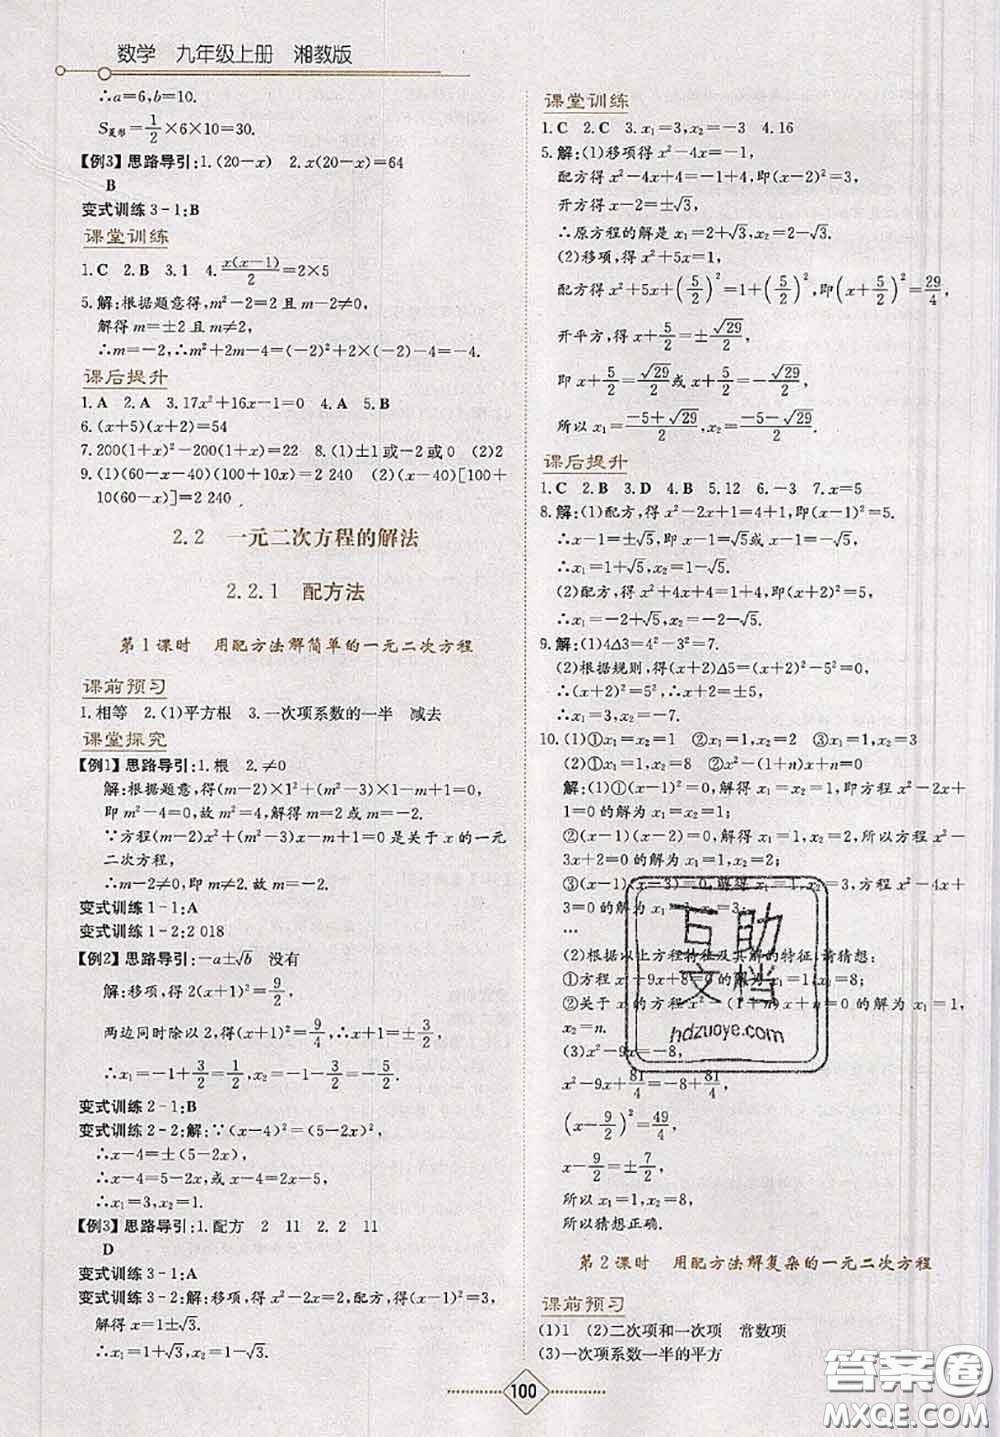 数学 九年级上册 湘教版
∴a=6,b=10.
S菱形=1/2×6×10=30.
【例3】思路导引:1.(20-x) 2.x(20-x)=64
B
变式训练3-1:B
课堂训练
1.C 2.B 3.1 4.x(x-1)/2=2×5
5.解:根据题意得,m²-2=2且m-2≠0,
解得m=±2且m≠2,
∴m=-2,∴m²+2m-4=(-2)²+2×(-2)-4=-4.
课后提升
1.A 2.A 3.17x²+16x-1=0 4.A 5.B
6.(x+5)(x+2)=54
7.200(1+x)²-200(1+x)=22 8.(1)±1或-2或0 (2)2
9.(1)(60-x-40)(100+10x)=2 240 (2)(x-40)[100+
10(60-x)]=2 240
2.2 一元二次方程的解法
2.2.1 配方法
第1课时 用配方法解简单的一元二次方程
课前预习
1.相等 2.(1)平方根 3.一次项系数的一半 减去
课堂探究
【例1】思路导引:1.根 2.≠0
解:根据题意,得(m-2)×1²+(m²-3)×1-m+1=0,
即m²-4=0,故m²=4,解得m=2或m=-2.
∵方程(m-2)x²+(m²-3)x-m+1=0是关于x的一元
二次方程,
∴m-2≠0,即m≠2.故m=-2.
变式训练1-1:A
变式训练1-2:2 018
【例2】思路导引:-a±√b 没有
解:移项,得2(x+1)²=9/2,
两边同时除以2,得(x+1)²=9/4,∴x+1=±3/2,
∴x₁=-1+3/2=1/2,x₂=-1-3/2=-5/2.
变式训练2-1:B
变式训练2-2:解:∵(x-4)²=(5-2x)²,
∴x-4=±(5-2x),
∴x-4=5-2x,或x-4=-5+2x,
∴x₁=3,x₂=1.
【例3】思路导引:1.配方 2 11 2.2 11
D
变式训练3-1:A
变式训练3-2:解:移项,得x²-2x=2,配方,得(x-1)²=3,
解得x=1±√3.
∴x₁=1+√3,x₂=1-√3.
课堂训练
1.C 2.C 3.x₁=3,x₂=-3 4.16
5.解:(1)移项得x²-4x=-1,
配方得x²-4x+4=-1+4,即(x-2)²=3,
开方得x-2=±√3,
∴原方程的解是x₁=2+√3,x₂=2-√3.
(2)移项,得x²+5x=1,
配方得x²+5x+(5/2)²=1+(5/2)²,即(x+5/2)²=29/4,
开平方,得x+5/2=±√29/2,
即x+5/2=√29/2或x+5/2=-√29/2,
所以x₁=(-5+√29)/2,x₂=(-5-√29)/2.
课后提升
1.C 2.B 3.D 4.B 5.12 6.-3 7.x=5
8.解:(1)配方,得x²-2x+1=4+1,即(x-1)²=5.
∴x-1=±√5,即x-1=√5或x-1=-√5.
∴x₁=1+√5,x₂=1-√5.
(2)配方,得x²+4x+4=1+4,即(x+2)²=5,
∴x+2=±√5,
∴x₁=-2+√5,x₂=-2-√5.
9.解:(1)4Δ3=4²-3²=7.
(2)根据规则,得(x+2)Δ5=(x+2)²-5²=0,
∴(x+2)²=5²,∴x+2=±5,
∴x₁=3,x₂=-7.
10.(1)①x₁=x₂=1 ②x₁=1,x₂=2 ③x₁=1,x₂=3
(2)①x₁=1,x₂=8 ②x²-(1+n)x+n=0
解:(1)①(x-1)²=0,解得x₁=x₂=1,即方程x²-2x+
1=0的解为x₁=x₂=1;
②(x-1)(x-2)=0,解得x₁=1,x₂=2,所以方程x²-
3x+2=0的解为x₁=1,x₂=2;
③(x-1)(x-3)=0,解得x₁=1,x₂=3,方程x²-4x+
3=0的解为x₁=1,x₂=3;
…
(2)根据以上方程特征及其解的特征,请猜想:
①方程x²-9x+8=0的解为x₁=1,x₂=8;
②关于x的方程x²-(1+n)x+n=0的解为x₁=1,
x₂=n.
(3)x²-9x=-8,
x²-9x+81/4=-8+81/4,
(x-9/2)²=49/4,
x-9/2=±7/2,
所以x₁=1,x₂=8,
所以猜想正确.
第2课时 用配方法解复杂的一元二次方程
课前预习
(1)1 (2)二次项和一次项 常数项
(3)一次项系数一半的平方
100
互助
文档
hdzuoye.com
答案圈
MXQE.COM